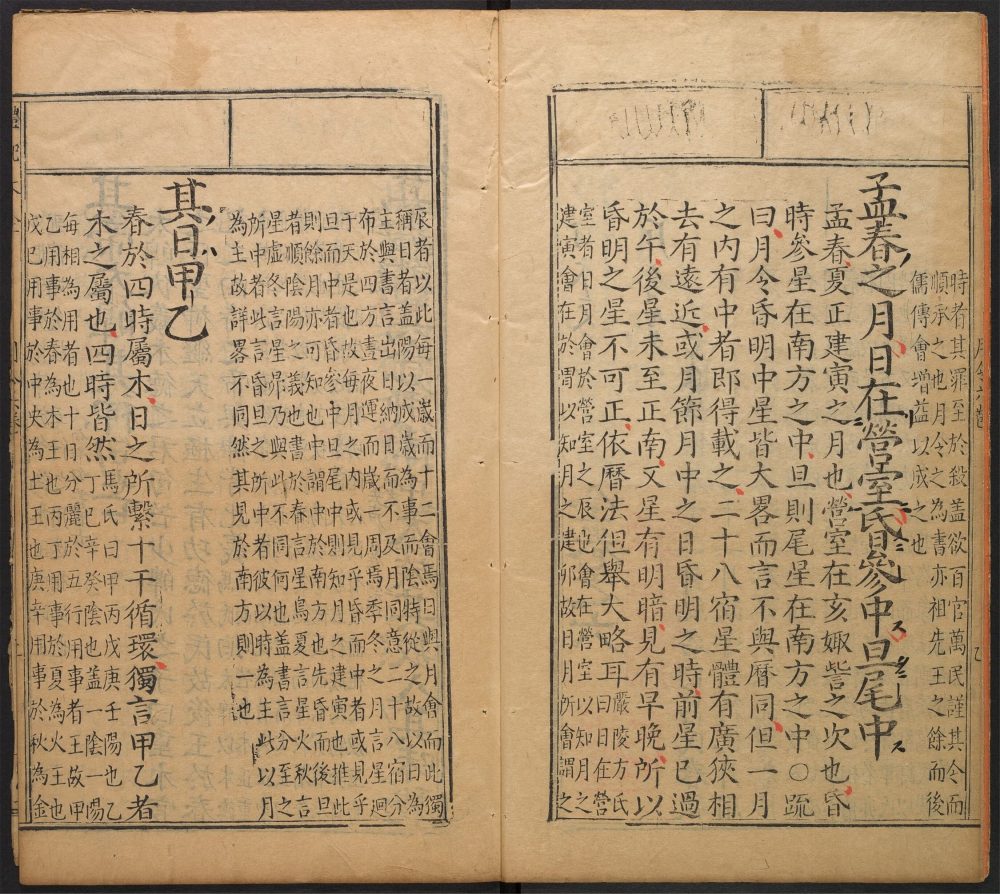 時者其罪至於殺盖欲百官萬民謹其令而
順承之也月令之為書亦相先王之餘而後
儒傳會增益以成之也
孟春之月日在營室昏參中旦尾中
孟春夏正建寅之月也營室在亥娵訾之次也昏
時參星在南方之中旦則尾星在南方之中○疏
曰月令昏明中星皆大畧而言不與曆同但一月
之內有中者即得載之二十八宿星體有廣狹相
去有遠近或月節月中之日昏明之時前星已過
於午後星未至正南又星有明暗見有早晚所以
昏明之星不可正依曆法但舉大略耳嚴陵方氏曰日在營
室者日月會於營室之辰也會在營室以知月之
建寅會在於謂以知月之建卯故日月所會謂之
辰者以此每一歲而十二會焉日與月會而此獨
稱日者盖陽以成歲為事而陰時從之故以日為
主與書言出日納日日而不及月同意二十八宿分
布於四方晝夜運而歲一周焉季冬之月言星廻
于天是也故每月之內或見乎昏而中者或見乎
旦而中昏參中旦尾中則知月之建寅也推此
則餘月亦可知也中謂中於南方也先昏而後旦
者順陰陽之義也書於春言星鳥夏言星火秋言
星虛冬言星昴乃與此不同何也盖書言分至之
所中者此言昏旦之所中者彼以時為主此以月
為主故詳畧不同然其見於南方則一也
其日甲乙
春於四時屬木日之所繫十干循環獨言甲乙者
木之屬也四時皆然馬氏曰甲丙戊庚壬陽也乙
丁巳辛癸陰也盖一陰一陽
每相為用者也十日分麗於五行用事者王故甲
乙用事於春為木王也丙丁用事於夏為火王也
戊巳用事於中央為土王也庚辛用事於秋為金